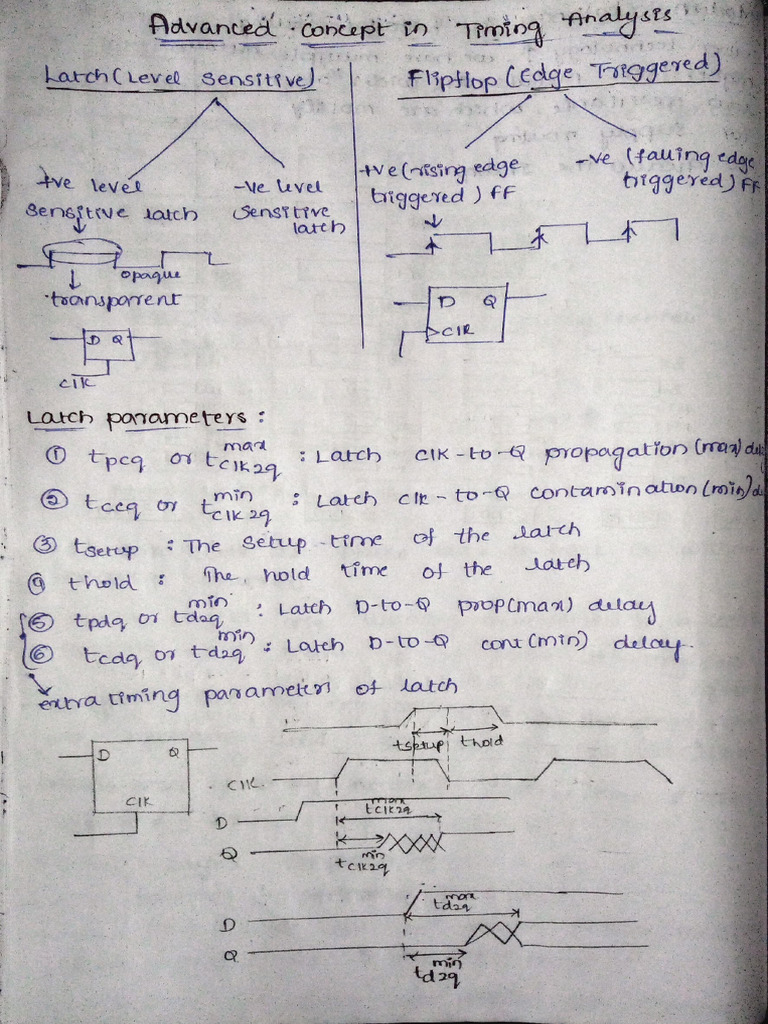 Advanced concept in Timing Analysis
Latch (Level Sensitive)
Flipflop (Edge Triggered)
+ve level
sensitive latch
-ve level
sensitive
latch
+ve (rising edge
triggered) FF
-ve (falling edge
triggered) FF
opaque
transparent
D Q
Clk
D Q
Clk
Latch parameters:
① tpcq or t max clk2q : Latch clk-to-Q propagation (max)
② tccq or t min clk2q : Latch clk-to-Q contamination (min)
③ tsetup : The setup time of the latch
④ thold : The hold time of the latch
⑤ tpdq or t min d2q : Latch D-to-Q prop(max) delay
⑥ tcdq or t min d2q : Latch D-to-Q cont(min) delay.
extra timing parameters of latch
tsetup thold
D Q
Clk
Clk
t max clk2q
D
Q
t min clk2q
t max d2q
D
Q
t min d2q